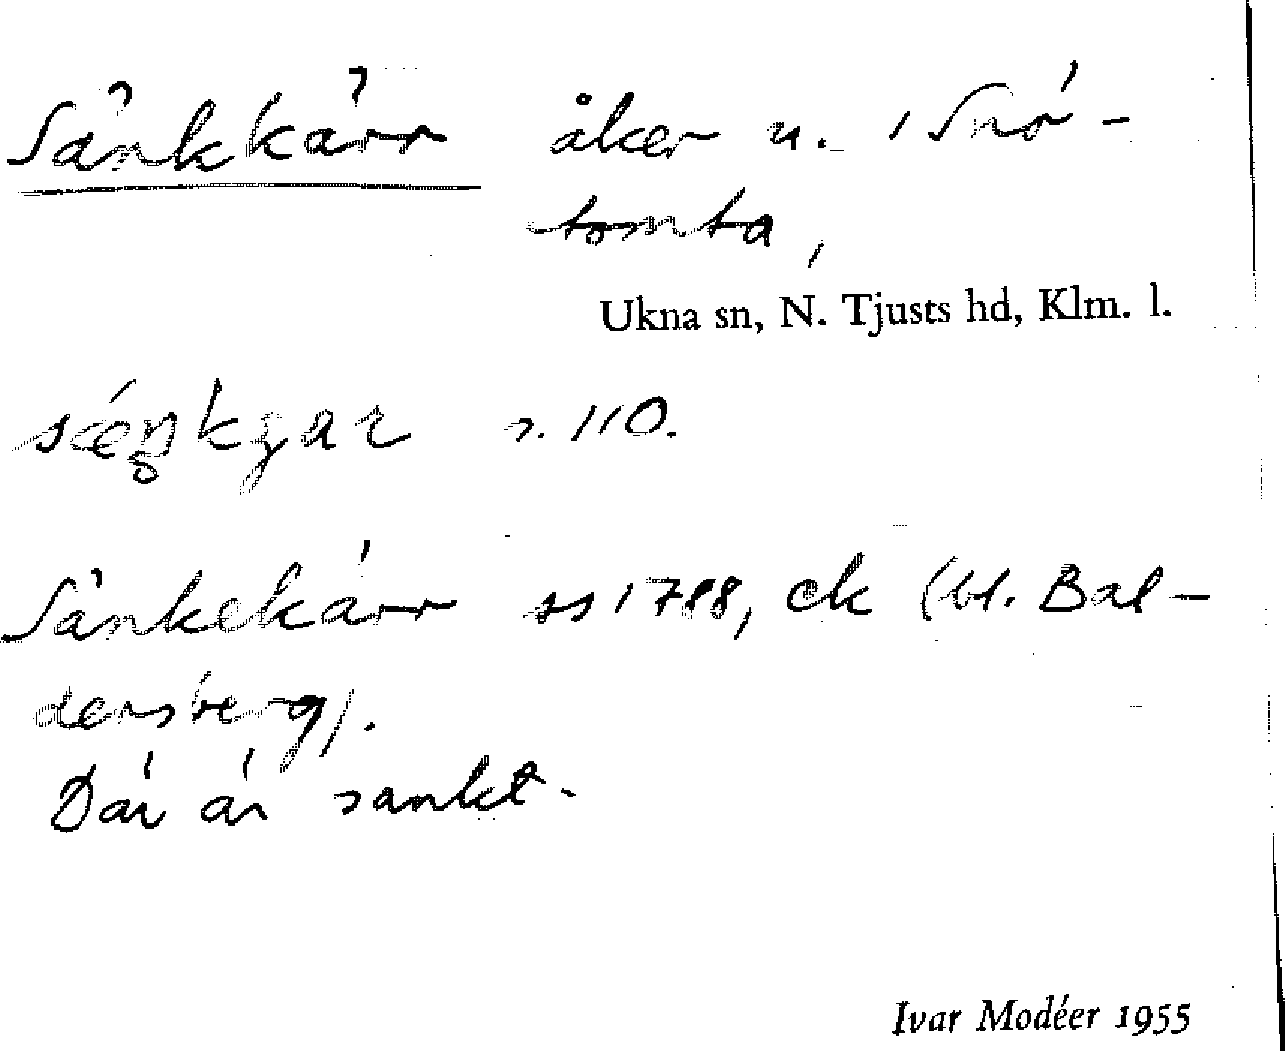 Sänkkärr åker n. i Snö-
tomta,
Ukna sn, N. Tjusts hd, Klm. l.
s. 110.
Sänkekärr ss 1788, ek (bl. Bal-
dersberg).
Där är sankt.
Ivar Modéer 1955